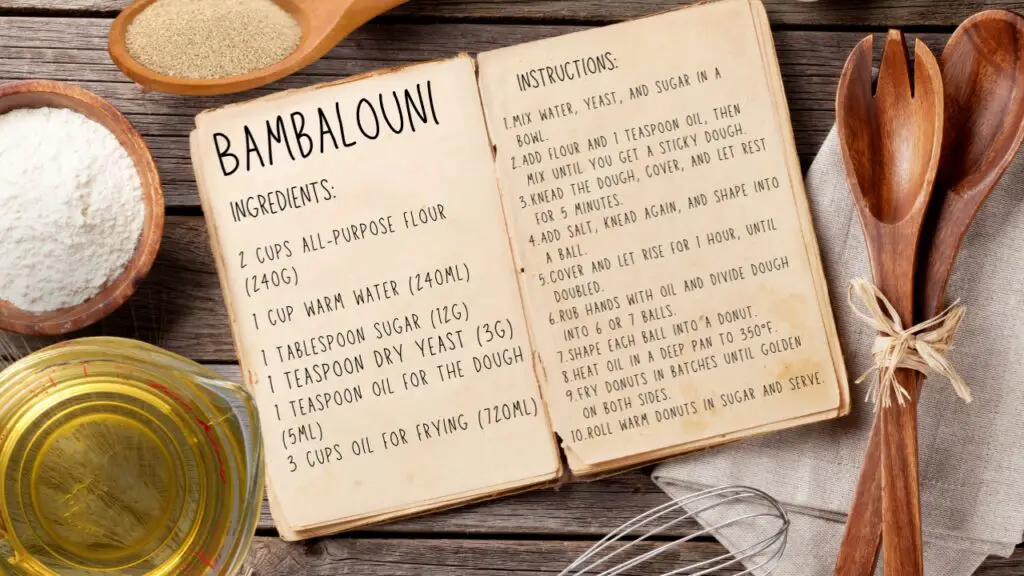 BAMBALOUNI
INGREDIENTS:
2 CUPS ALL-PURPOSE FLOUR
(240G)
1 CUP WARM WATER (240ML)
1 TABLESPOON SUGAR (12G)
1 TEASPOON DRY YEAST (3G)
1 TEASPOON OIL FOR THE DOUGH
(5ML)
3 CUPS OIL FOR FRYING (720ML)
INSTRUCTIONS:
1.MIX WATER, YEAST, AND SUGAR IN A
BOWL.
2.ADD FLOUR AND 1 TEASPOON OIL, THEN
MIX UNTIL YOU GET A STICKY DOUGH.
3.KNEAD THE DOUGH, COVER, AND LET REST
FOR 5 MINUTES.
4.ADD SALT, KNEAD AGAIN, AND SHAPE INTO
A BALL.
5.COVER AND LET RISE FOR 1 HOUR, UNTIL
DOUBLED.
6.RUB HANDS WITH OIL AND DIVIDE DOUGH
INTO 6 OR 7 BALLS.
7.SHAPE EACH BALL INTO A DONUT.
8.HEAT OIL IN A DEEP PAN TO 350°F.
9.FRY DONUTS IN BATCHES UNTIL GOLDEN
ON BOTH SIDES.
10.ROLL WARM DONUTS IN SUGAR AND SERVE.